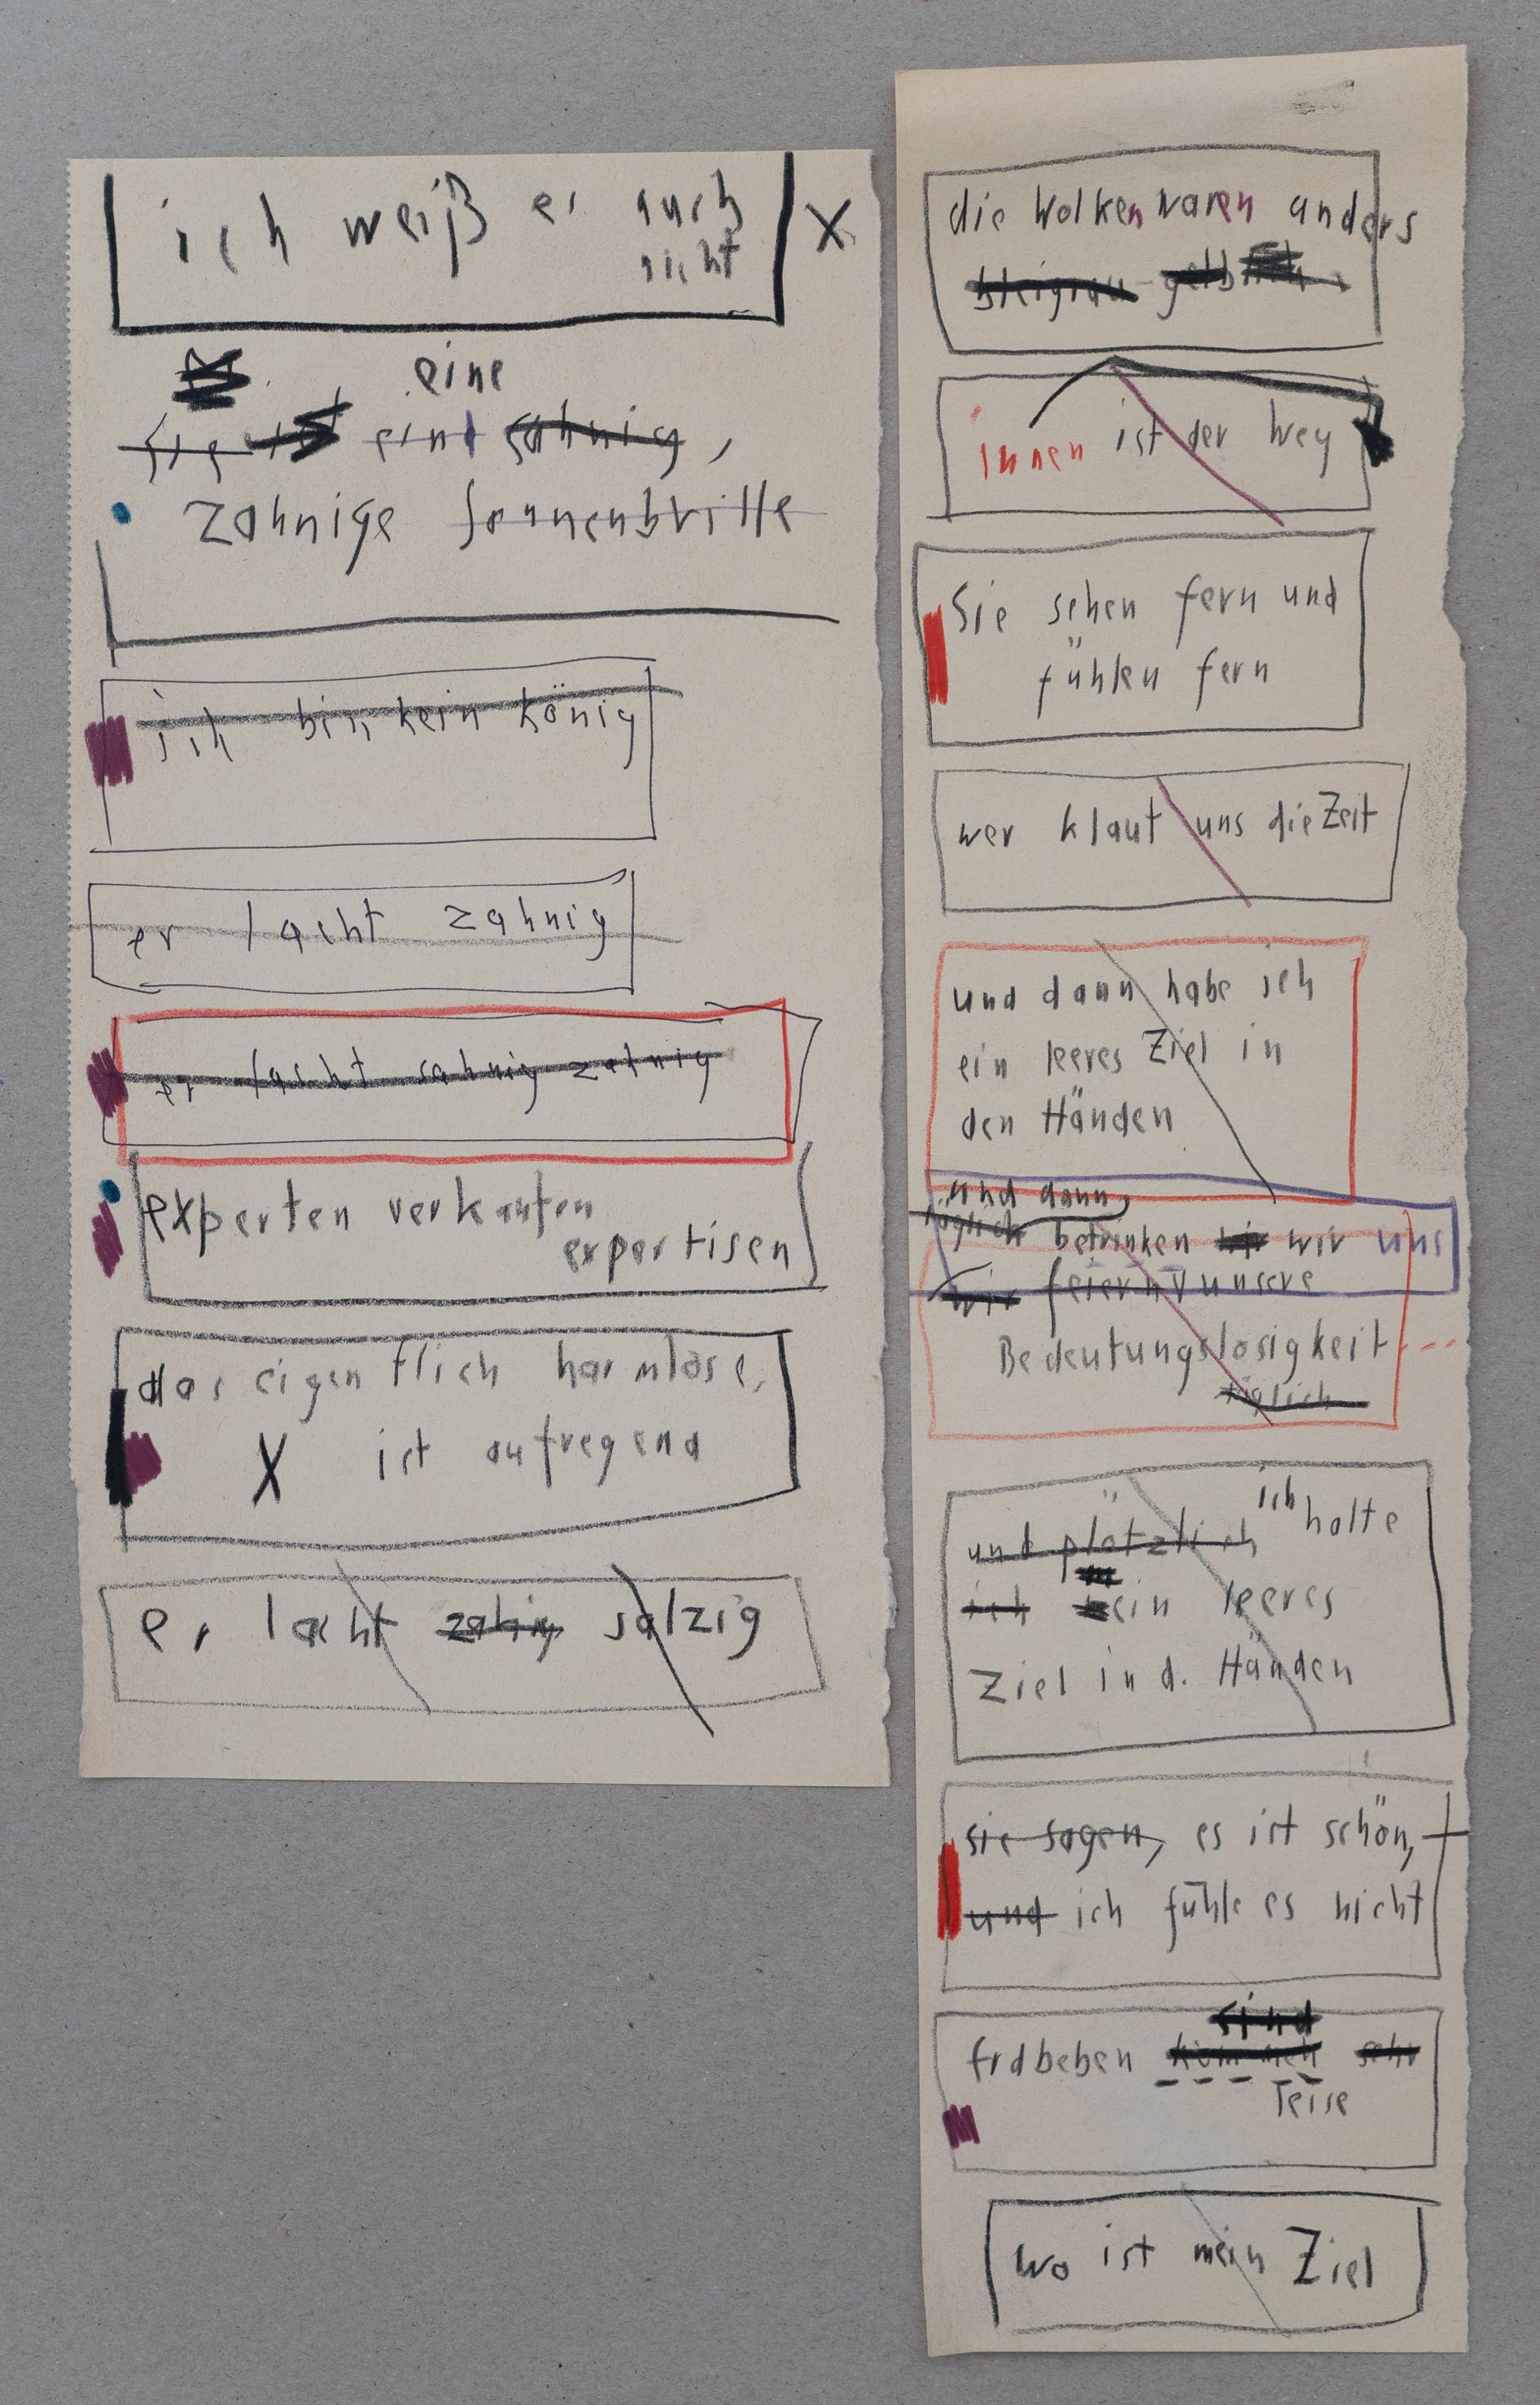 ich weiß es auch
nicht
eine
sie ist eine sahnig,
zahnige Sonnenbrille
ich bin kein könig
er lacht zahnig
er lacht sahnig zahnig
experten verkaufen
expertisen
das eigentlich harmlose,
X ist aufregend
er lacht zahnig salzig
die Wolken waren anders
bleigrau gelblich
innen ist der Weg
Sie sehen fern und
fühlen fern
wer klaut uns die Zeit
und dann habe ich
ein leeres Ziel in
den Händen
und dann,
täglich betrinken wir wir uns
wir feiern unsere
Bedeutungslosigkeit
täglich
und plötzlich ich halte
ich ein leeres
Ziel in d. Händen
sie sagen, es ist schön,
und ich fühle es nicht
sind
Erdbeben kommen sehr
leise
wo ist mein Ziel